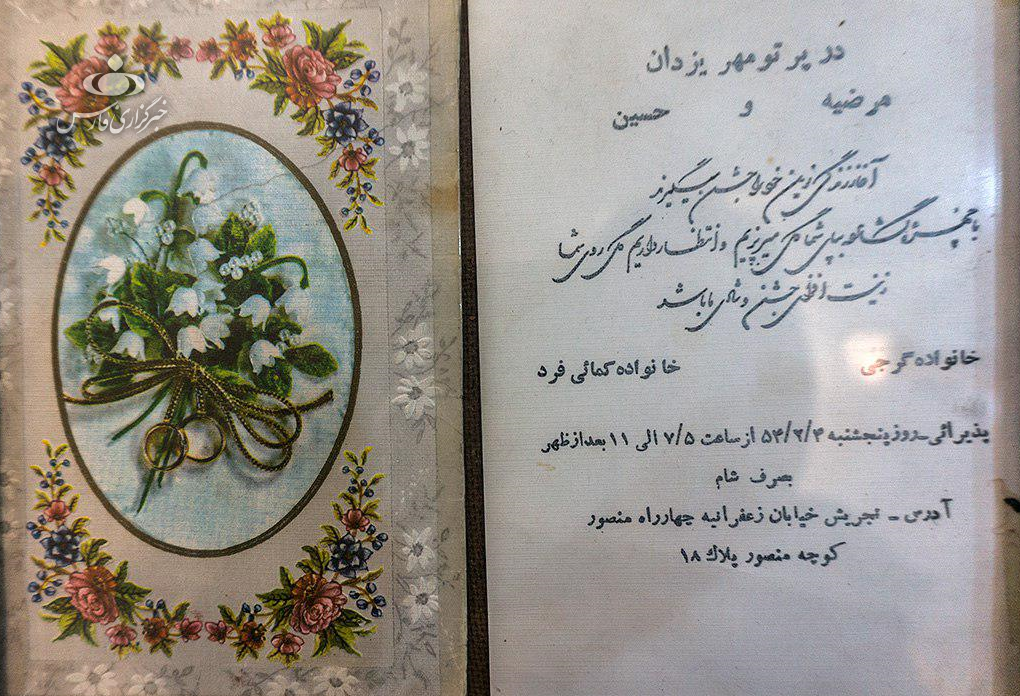 خبرگزاری فارس
در پرتو مهر یزدان
مرضیه و حسین
آغاز زندگی نوین خود را جشن میگیرند
با چهره گشاده بپای شما گل میریزیم و انتظار داریم گل روی شما
زینت افزای جشن و شادی ما باشد
خانواده گرجی خانواده کمائی فرد
پذیرائی - روز پنجشنبه ۵۴/۲/۴ از ساعت ۷/۵ الی ۱۱ بعد از ظهر
بصرف شام
آدرس - تجریش خیابان زعفرانیه چهارراه منصور
کوچه منصور پلاك ۱۸